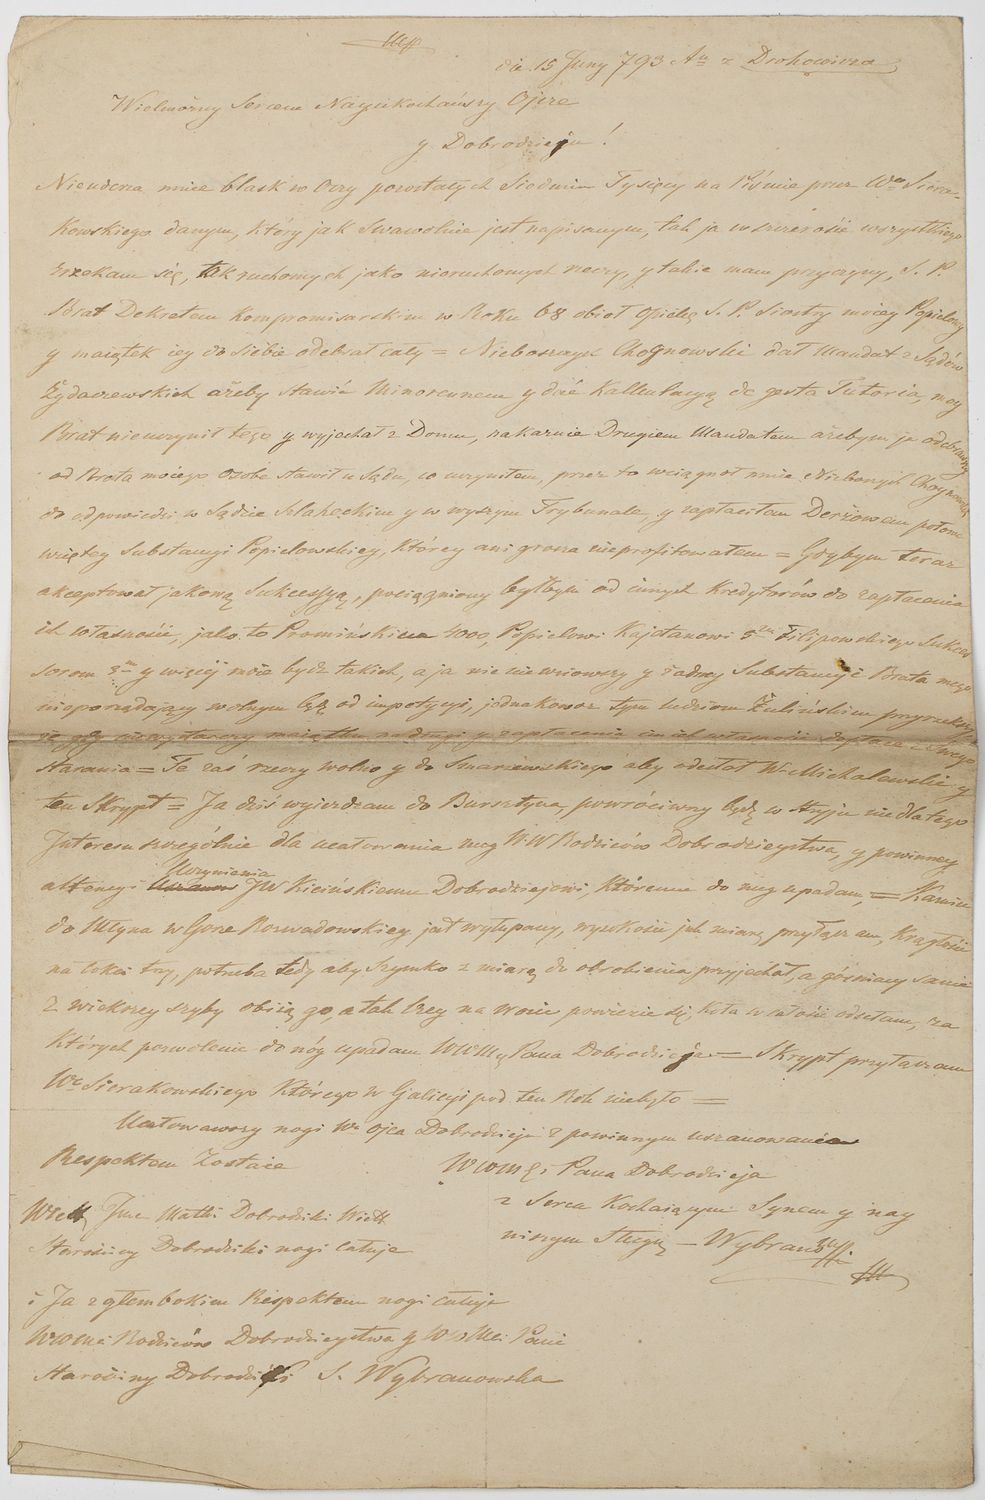 die 15 Juny 793 An z Drohowicza
Wielmożny Sercem Nayukochańszy Oycze
y Dobrodzieju!
Nieuderza mnie blask w Oczy pozostałych Siedmiu Tysięcy na Piśmie przez Wo Siera-
kowskiego danym, który jak Swawolnie jest napisanym, tak ja w szczerości wszystkiego
zrzekam się, tak ruchomych jako nieruchomych rzeczy, y takie mam przyczyny, S. P.
Brat Dekretem Kompromisarskim w Roku 68 obioł Opiekę S. P. Siostry mojey Popielowy
y maiątek iey do Siebie odebrał cały = Nieboszczyk Chognowski dał Mandat z Sądów
Żydaczewskich ażeby stawić Minorennem y dać Kalkulacyą de gesta Tutoria, moy
Brat nieuczynił tego y wyjechał z Domu, nakazuie Drugiem Mandatem ażebym ja odebrawszy
od Brata mojego Osobe stawił u Sądu, co uczyniłem, przez to wciągnoł mnie Nieboszczyk Chognowski
do odpowiedzi w Sądzie Szlacheckim y w wyszym Trybunale, y zapłaciłem Derżowem połowe
wziętey Substancyi Popielowskiey, którey ani grosza nieprofitowałem = Gdybym teraz
akceptował jakową Sukcessyą, pociągniony byłbym od innych Kredytorów do zapłacenia
ich własności, jako to Promińskim 4000, Popielowi Kajetanowi 5m Filipowskiego Sukces
sorom 3m y więcej może bydz takich, a ja nic niewziowszy y żadney Substancyi Brata mego
nieposiadający wolnym będę od impetycyi, jednakowoz tym ludziom Żulińskim przyrzekam
że gdy niewystarczy maiątku na długi y zapłacenie im ich własności dopłace z Swego
Starania = Te zaś rzeczy wolno y do Smarzewskiego aby odesłał W. Michalewski y
ten Skrypt = Ja dziś wyjezdzam do Bursztyna, powróciwszy będę w Stryju nie dla tego
Interesu szczególnie dla ucałowania nog WW Rodziców Dobrodzieystwa, y powinney
attencyi Uczynienia JW Kicińskiemu Dobrodziejowi, któremu do nog upadam, = Kamień
do Młyna w Gorze Rozwadowskiey jest wyłupany, wysokości jak miarę przyłączam, Krągłości
na łokci trzy, potrzeba tedy aby Szymko z miarą do obrobienia przyjechał, a gósniacy sanie
z wiekszey szyby obiią go, a tak lzey na wozie powiezie się, Koła w całości odsełam, za
których pozwolenie do nóg upadam WWMę Pana Dobrodzieja = Skrypt przyłączam
Wo Sierakowskiego którego w Galicyi pod ten Rok niebyło =
Ucałowawszy nogi Wo Oyca Dobrodzieja z powinnym uszanowaniem
Respektem Zostaie WWMę i Pana Dobrodzieja
z Serca Kochającym Synem y nay
niszym Sługą – Wybranowski
Wielk Jme Matki Dobrodziki Wielk
Starościny Dobrodziki nogi całuje
i Ja z głembokiem Respektem nogi całuje
WWMci Rodziców Dobrodzieystwa y WMci Pani
Starościny Dobrodziki S. Wybranowska